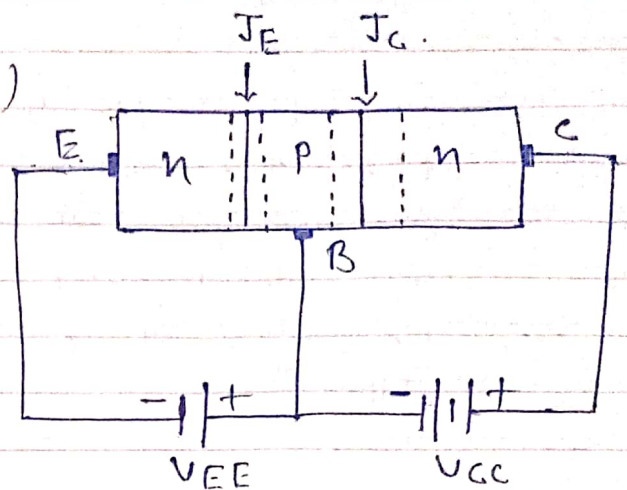 J_E J_C.
)
E n P n C
B
- + - +
V_EE V_CC